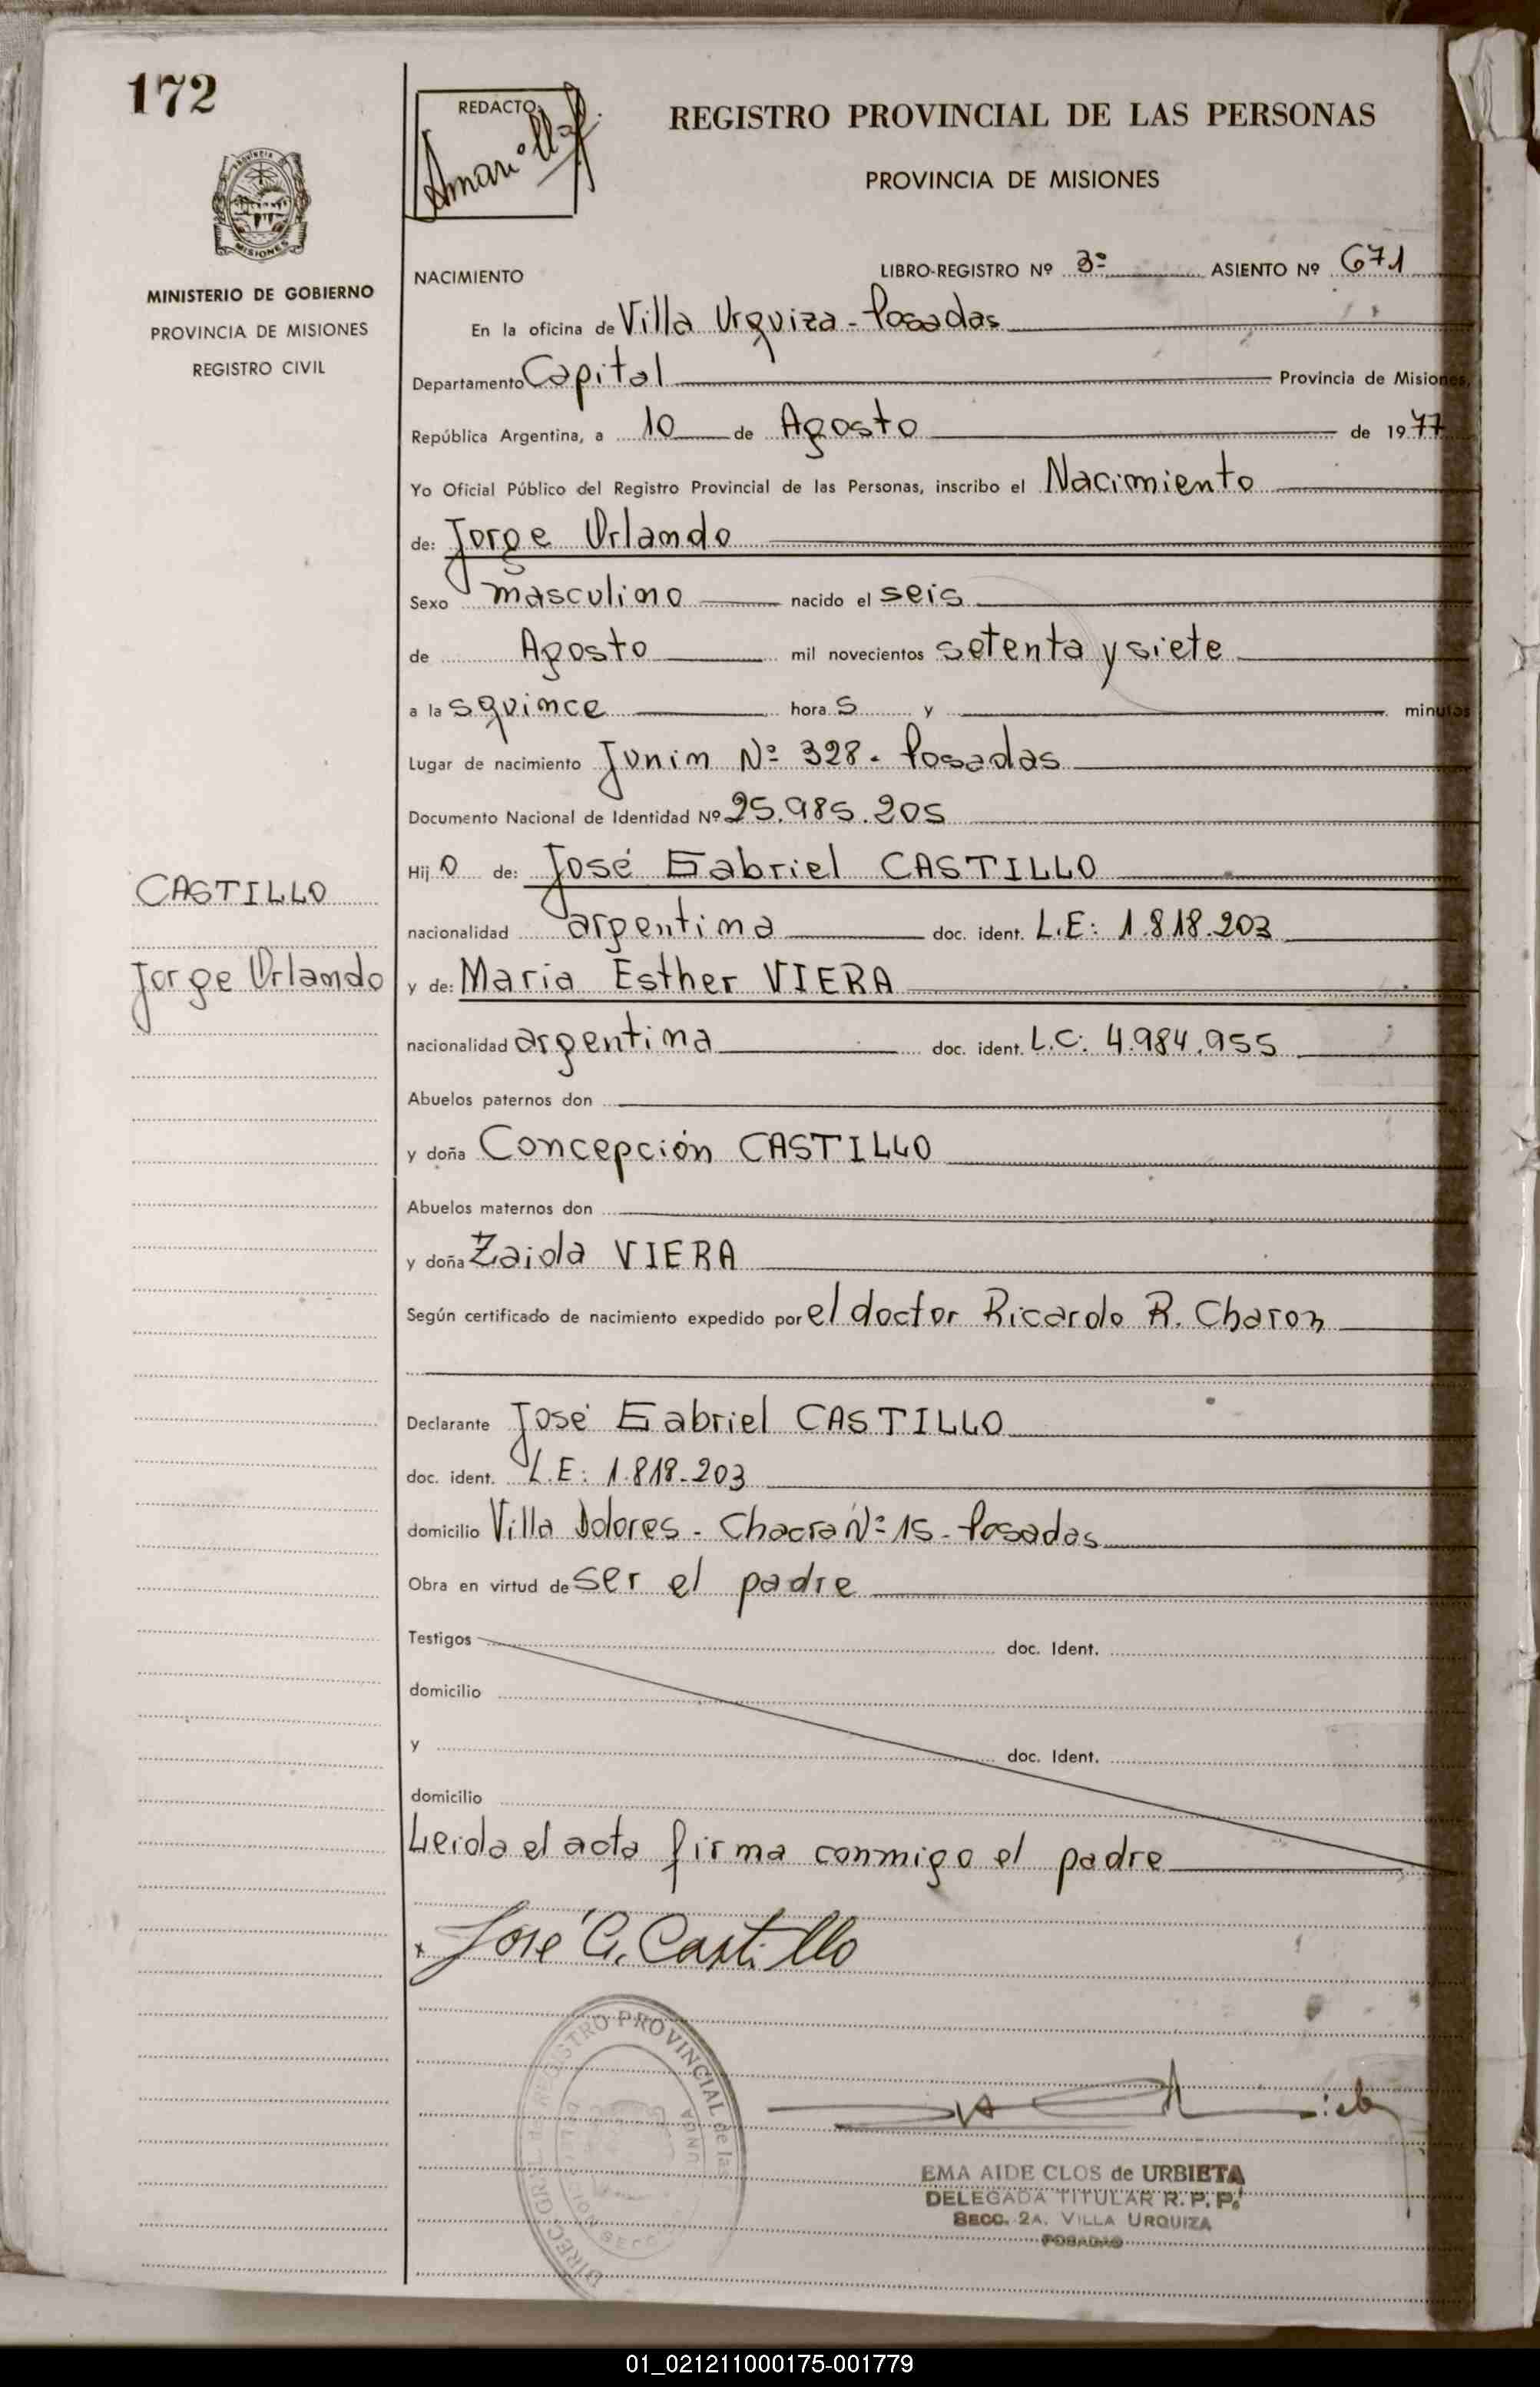 172
REDACTO
REGISTRO PROVINCIAL DE LAS PERSONAS
PROVINCIA DE MISIONES
MISIONES
MINISTERIO DE GOBIERNO
PROVINCIA DE MISIONES
REGISTRO CIVIL
NACIMIENTO LIBRO-REGISTRO Nº 3º ASIENTO Nº 671
En la oficina de Villa Urquiza - Posadas
Departamento Capital Provincia de Misiones,
República Argentina, a 10 de Agosto de 1977
Yo Oficial Público del Registro Provincial de las Personas, inscribo el Nacimiento
de: Jorge Orlando
Sexo masculino nacido el seis
de Agosto mil novecientos setenta y siete
a las quince horas y minutos
Lugar de nacimiento Junin Nº 328. Posadas
Documento Nacional de Identidad Nº 25.985.205
Hijo de: José Gabriel CASTILLO
CASTILLO
nacionalidad argentina doc. ident. L.E: 1.818.203
Jorge Orlando
y de: Maria Esther VIERA
nacionalidad argentina doc. ident. L.C: 4.984.955
Abuelos paternos don
y doña Concepción CASTILLO
Abuelos maternos don
y doña Zaida VIERA
Según certificado de nacimiento expedido por el doctor Ricardo R. Charon
Declarante José Gabriel CASTILLO
doc. ident. L.E: 1.818.203
domicilio Villa Dolores - Chacra Nº 15 - Posadas
Obra en virtud de ser el padre
Testigos doc. Ident.
domicilio
y doc. Ident.
domicilio
Leida el acta firma conmigo el padre
José G. Castillo
REGISTRO PROVINCIAL de las
EMA AIDE CLOS de URBIETA
DELEGADA TITULAR R.P.P.
SECC. 2A. VILLA URQUIZA
POSADAS
01_021211000175-001779